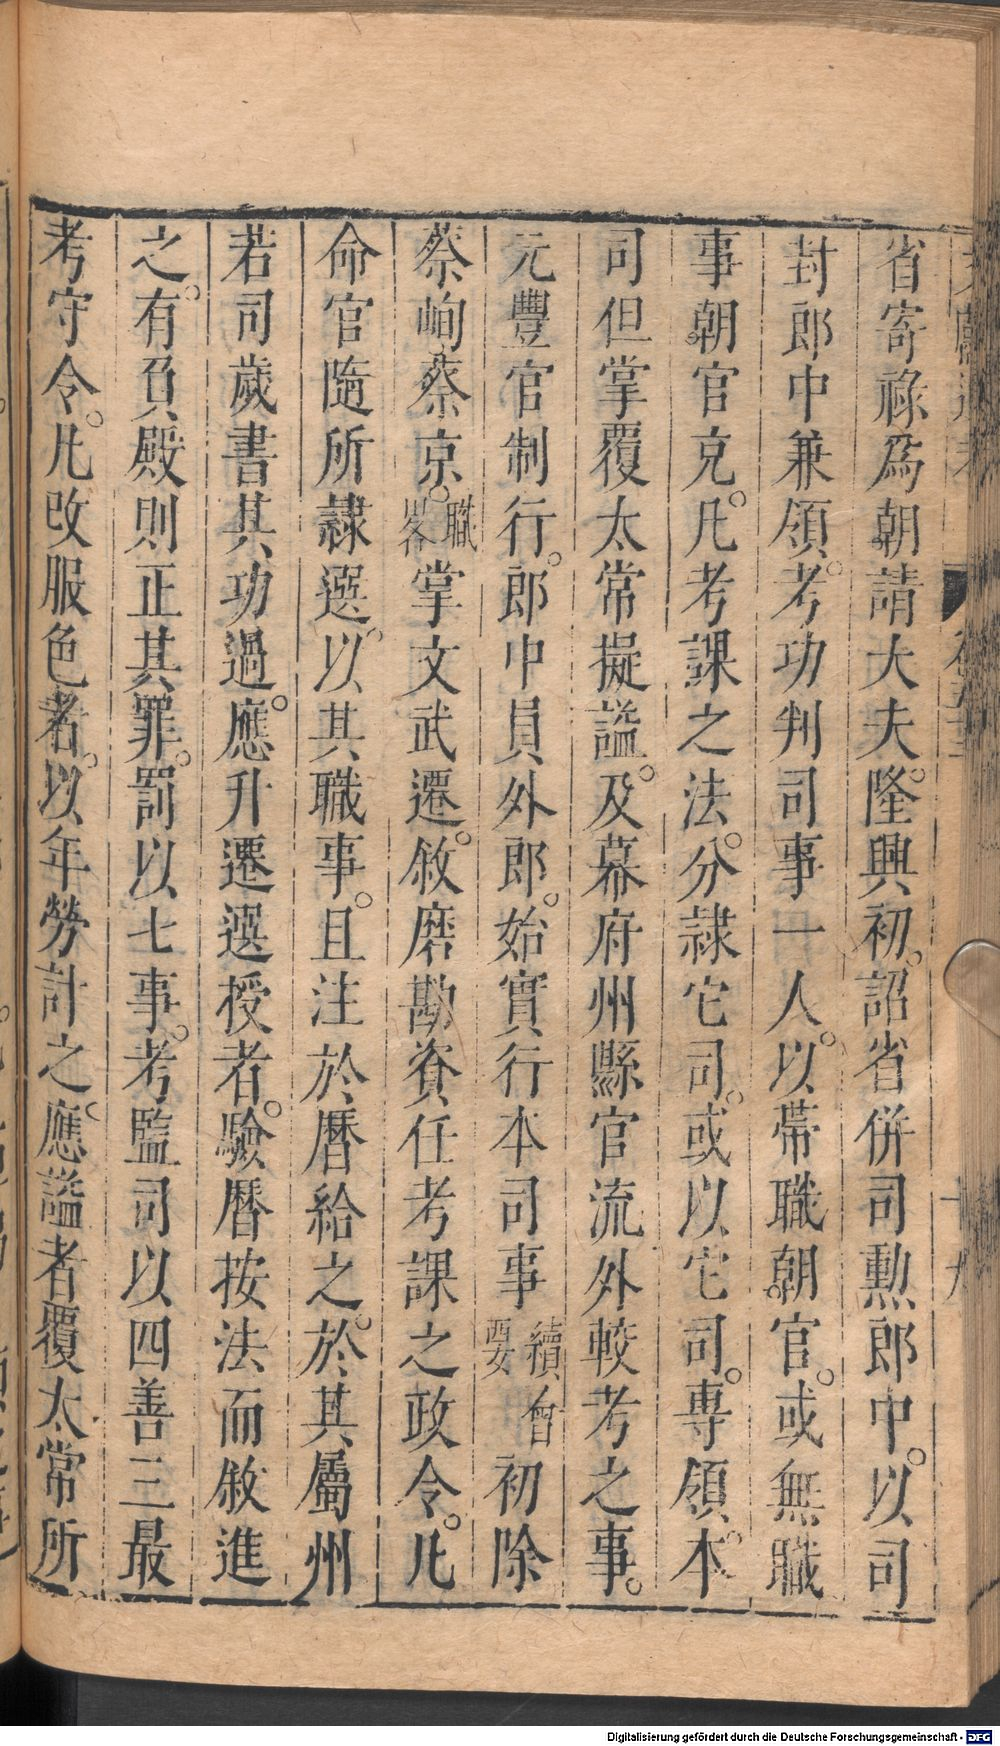 省寄祿爲朝請大夫。隆興初。詔省併司勲郎中。以司
封郎中兼領。考功判司事一人。以帶職朝官。或無職
事朝官充。凡考課之法。分隸它司。或以它司。專領。本
司但掌覆太常擬謚。及幕府州縣官流外較考之事。
元豐官制行。郎中員外郎。始實行本司事續會要初除
蔡峋蔡京。職畧掌文武遷。敘磨勘資任考課之政令。凡
命官隨所隸選。以其職事。且注於曆給之。於其屬州
若司歲書其功過。應升遷選授者。驗曆按法而敘進
之。有負殿則正其罪。罰以七事。考監司以四善三最
考守令。凡改服色者。以年勞計之。應謚者覆太常所
文獻通考
十九
Digitalisierung gefördert durch die Deutsche Forschungsgemeinschaft - DFG